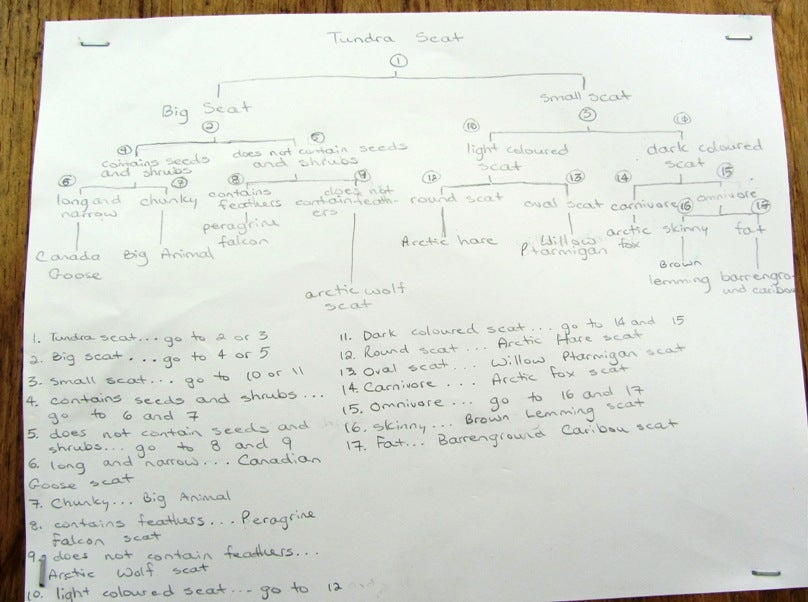 Tundra Scat
1
Big Scat
small scat
2
3
10
11
4
5
contains seeds and shrubs
does not contain seeds and shrubs
light coloured scat
dark coloured scat
6
7
8
9
12
13
14
15
long and narrow
chunky
contains feathers
does not contain feath-ers
round scat
oval scat
carnivore
omnivore
16
17
skinny
fat
Canada Goose
Big Animal
peragrine falcon
arctic wolf scat
Arctic hare
Willow Ptarmigan
arctic fox
Brown lemming
barrengro-und caribou
1. Tundra scat... go to 2 or 3
2. Big scat... go to 4 or 5
3. small scat... go to 10 or 11
4. contains seeds and shrubs...
go to 6 and 7
5. does not contain seeds and
shrubs... go to 8 and 9
6. long and narrow... Canadian
Goose scat
7. Chunky... Big Animal
8. contains feathers... Peragrine
Falcon scat
9. does not contain feathers...
Arctic Wolf scat
10. light coloured scat... go to 12
11. Dark coloured scat... go to 14 and 15
12. Round scat... Arctic Hare scat
13. Oval scat... Willow Ptarmigan scat
14. Carnivore.... Arctic fox scat
15. Omnivore... go to 16 and 17
16. skinny... Brown Lemming scat
17. Fat... Barrenground Caribou scat